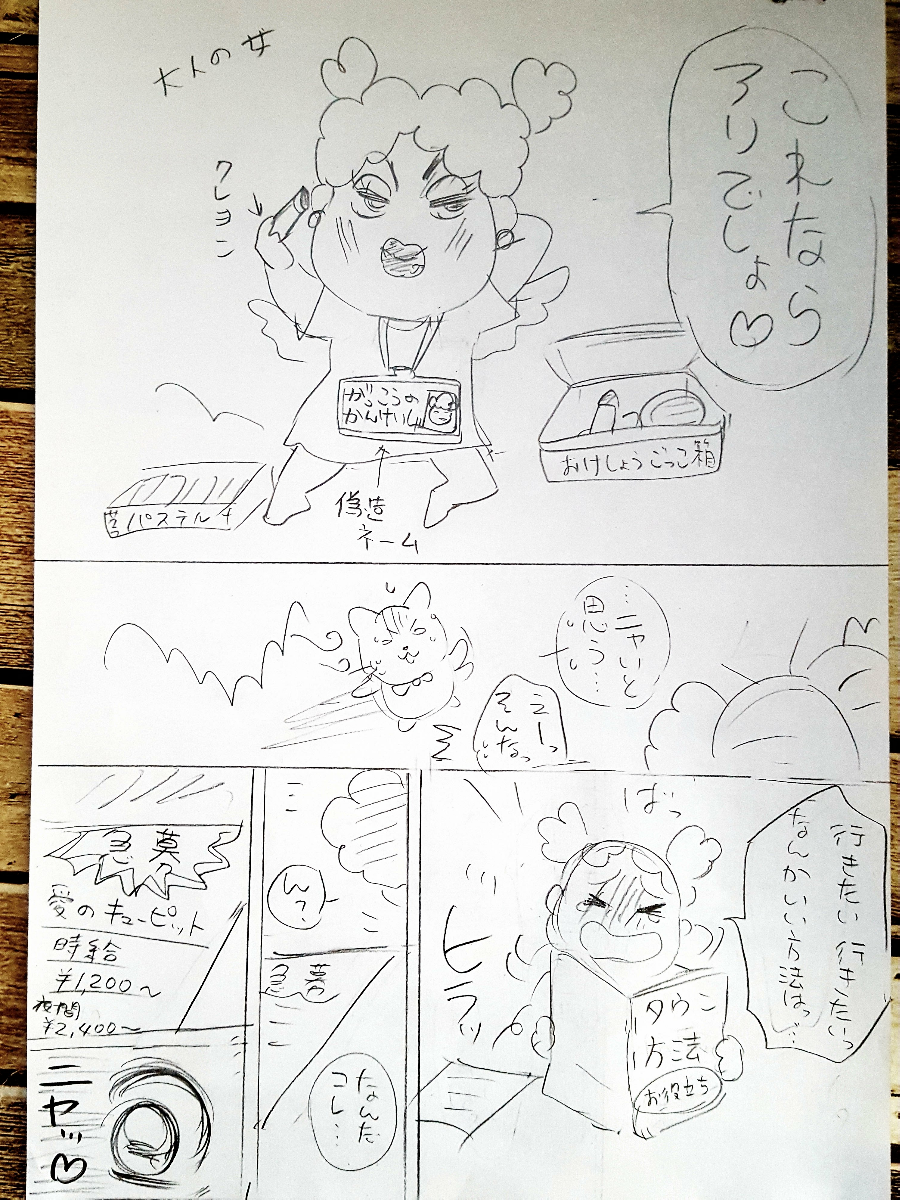 これなら
アリでしょ♡
大人の女
クレヨン
がっこうの
かんけいしゃ
偽造
ネーム
おけしょうごっこ箱
パステル
…ニャいと
思う…
えーっ
そんなっ
行きたい行きたいっ
なんかいい方法はっ…
ばっ
ヒラッ
タウン
方法
お役立ち
ん?
急募
なんだ
コレ…
急募
愛のキューピット
時給
¥1,200〜
夜間
¥2,400〜
ニヤッ♡